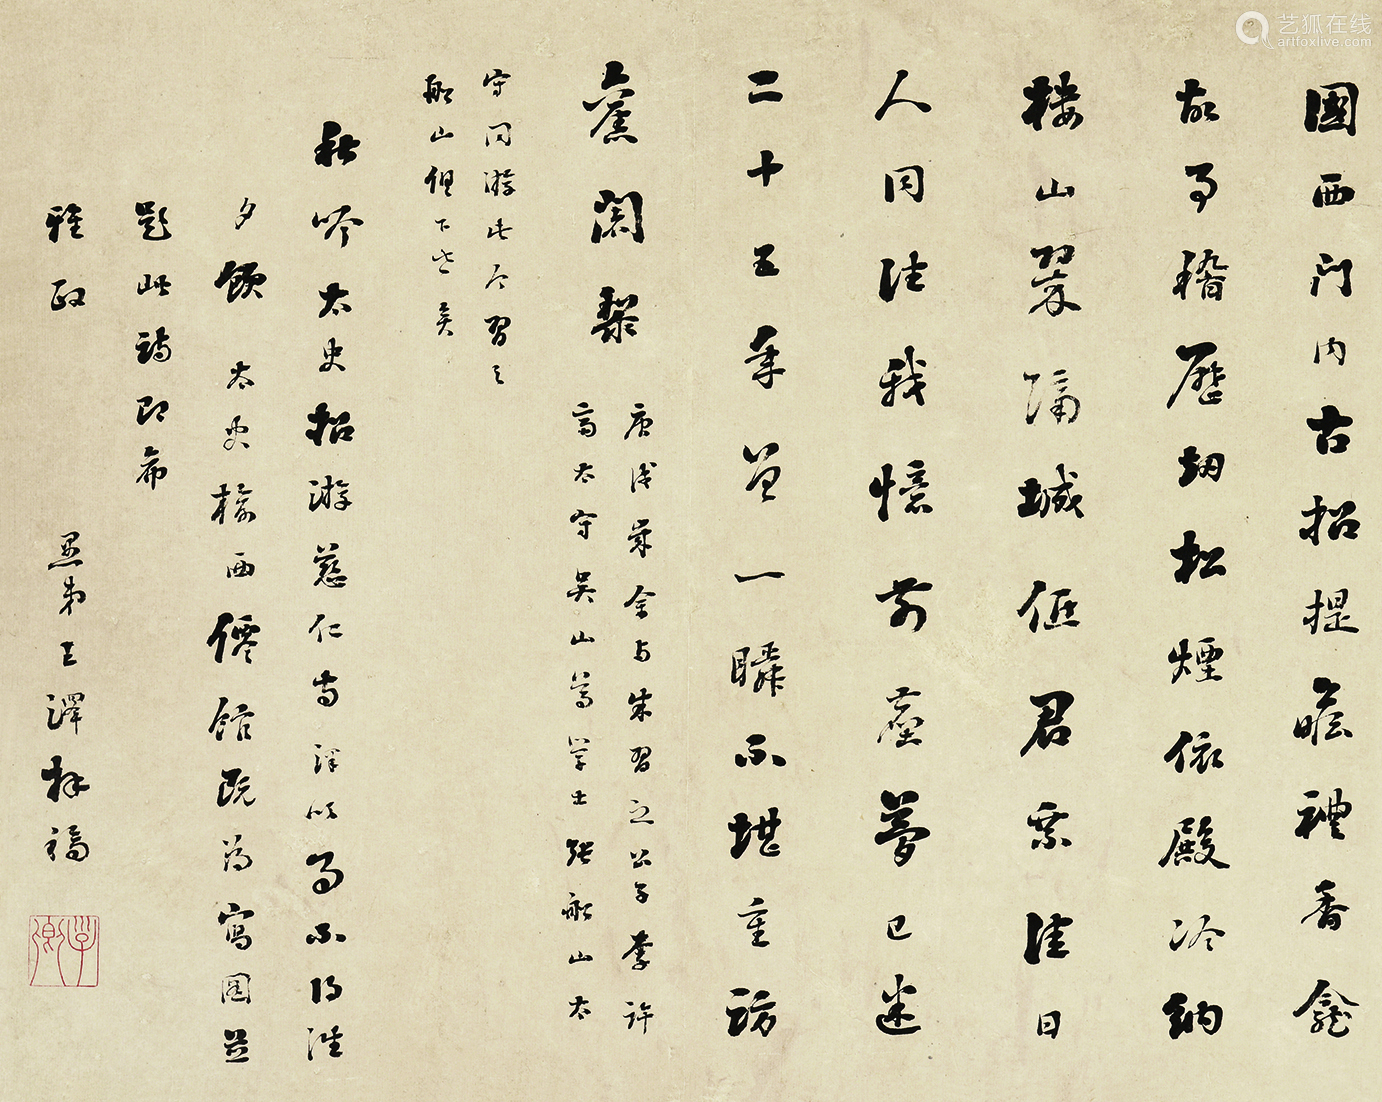 國西門內古招提瞻禮香龕
故事稽歷劫松煙依殿冷納
樓山翠隔城低君乘佳日
人同往我憶前塵夢已迷
二十五年曾一瞬不堪重訪
舊闍棃
庚戌歲余与朱習之公子李許
齋太守吳山尊學士張船山太
守同游此今習之
船山俱下世矣
秋吟太史招游慈仁寺澤以事不得往
夕飲 太史榆西僊館既為寫圖並
題此詩即希
雅政
愚弟王澤拜稿
艺狐在线
artfoxlive.com